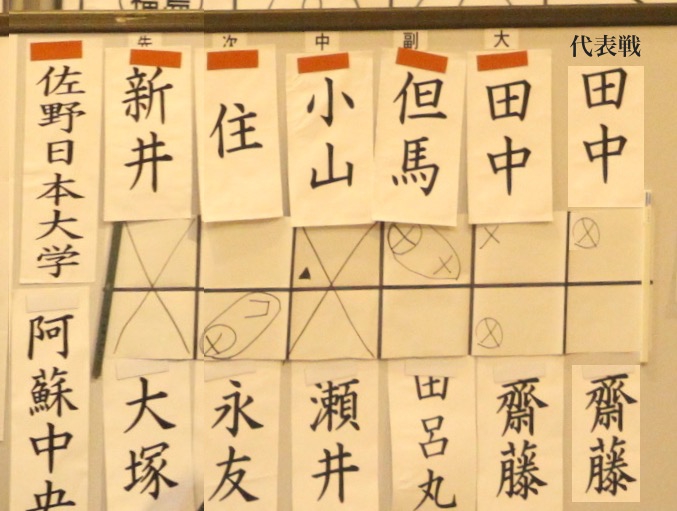 先 次 中 副 大 代表戦
佐野日本大学
新井
住
小山
但馬
田中
田中
✕ ▲ ⓧ ✕ ✕ ⓧ
✕ コ ⓧ ✕ ⓧ
阿蘇中央
大塚
永友
瀬井
田呂丸
齋藤
齋藤